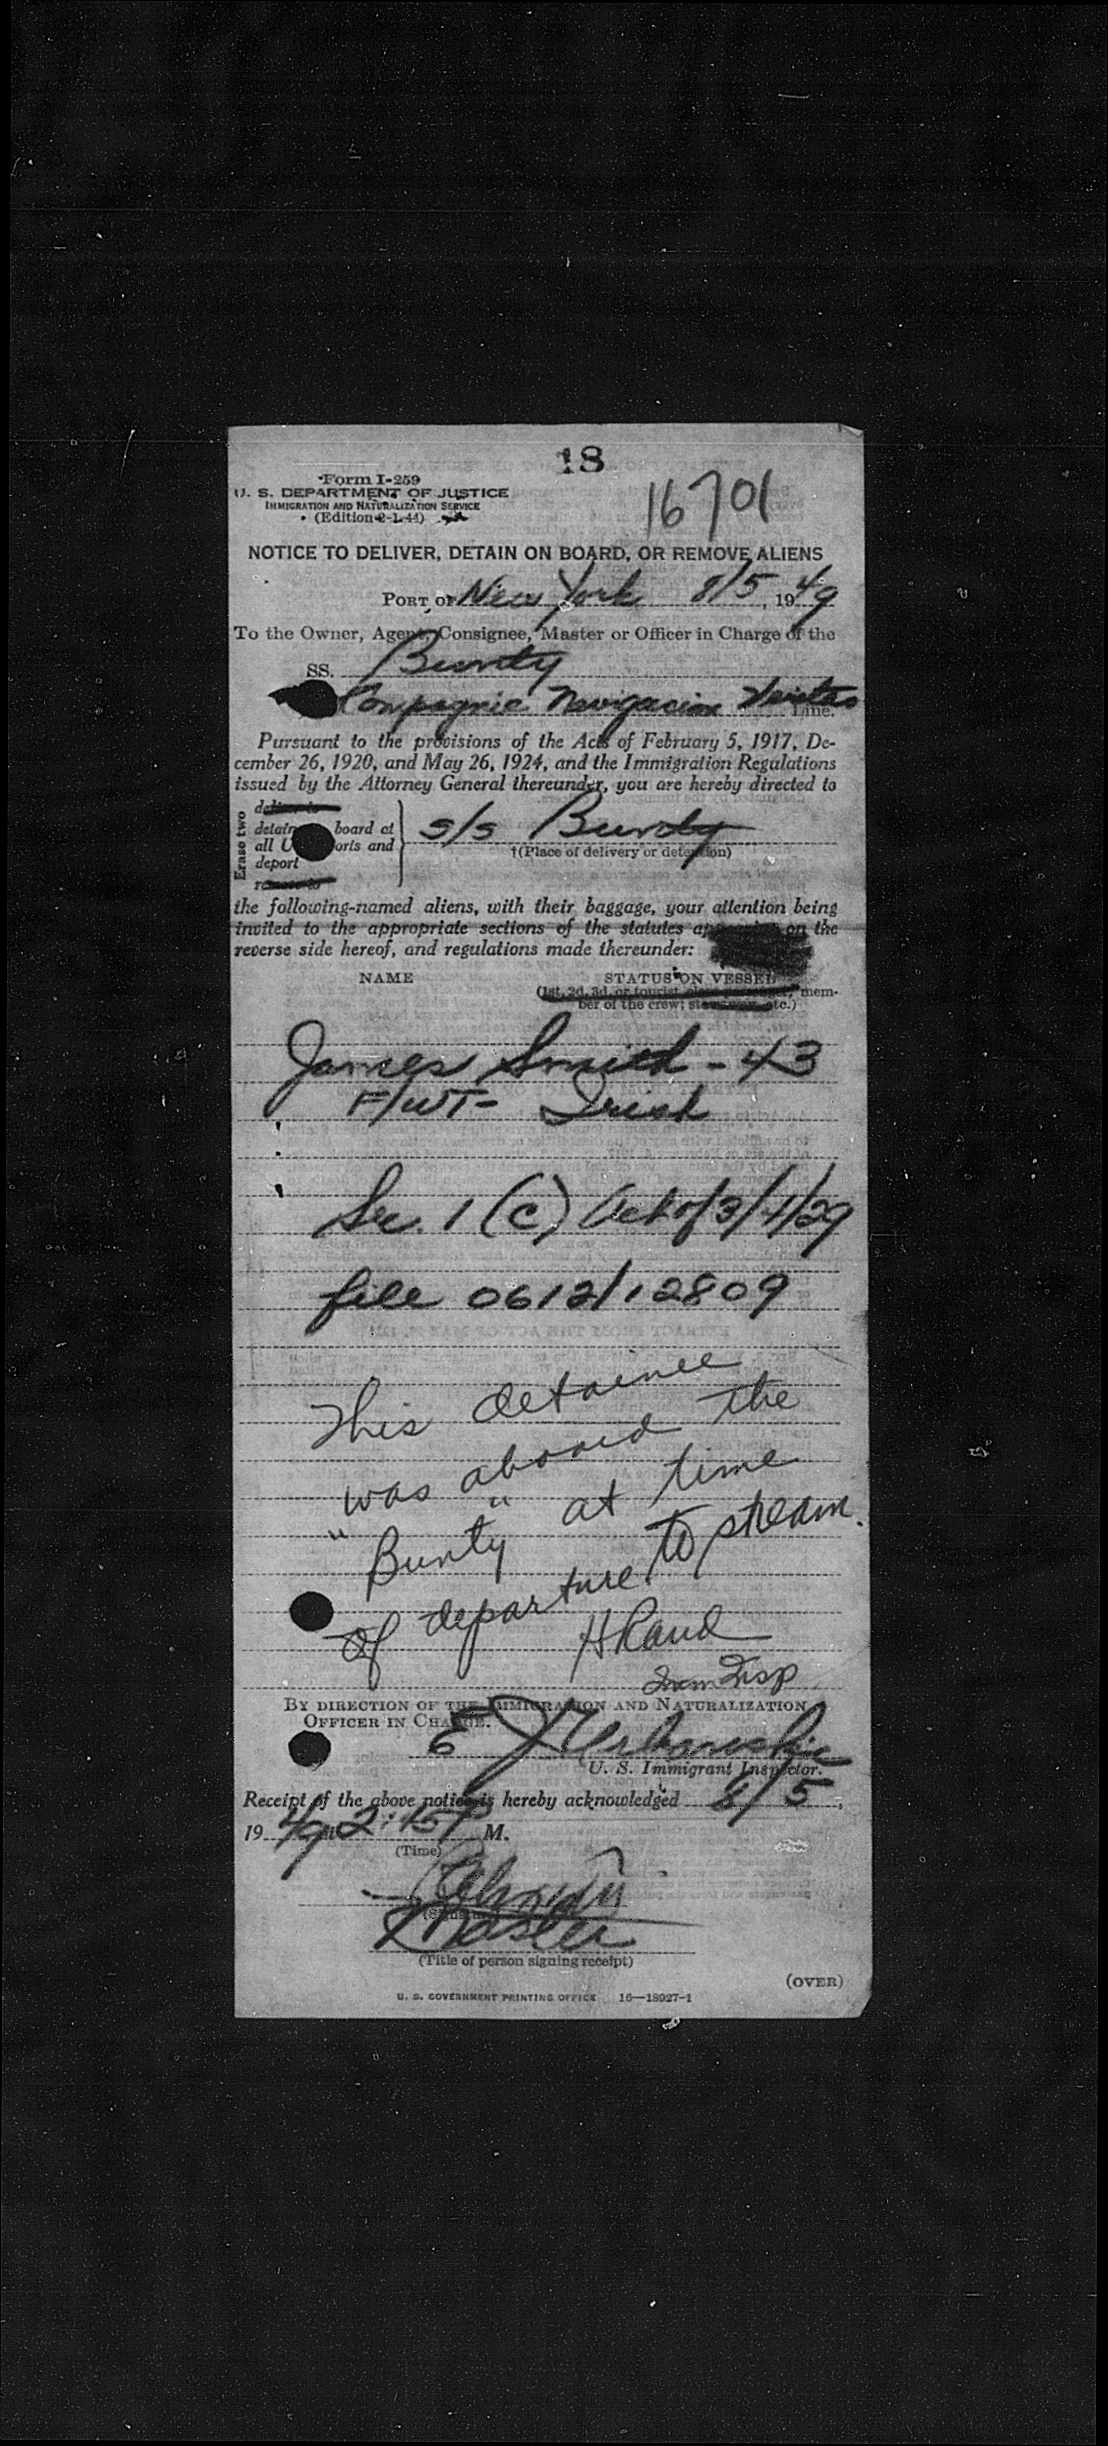 18
Form I-259
U. S. DEPARTMENT OF JUSTICE
IMMIGRATION AND NATURALIZATION SERVICE
(Edition 2-1-44)
16701
NOTICE TO DELIVER, DETAIN ON BOARD, OR REMOVE ALIENS
PORT OF New York 8/5, 1949
To the Owner, Agent, Consignee, Master or Officer in Charge of the
SS. Bunty
Compagnie Navigacion Line.
Pursuant to the provisions of the Acts of February 5, 1917, De-
cember 26, 1920, and May 26, 1924, and the Immigration Regulations
issued by the Attorney General thereunder, you are hereby directed to
Erase two
deliver to
detain board at
all U orts and
deport
remove to
s/s Bunty
†(Place of delivery or detention)
the following-named aliens, with their baggage, your attention being
invited to the appropriate sections of the statutes on the
reverse side hereof, and regulations made thereunder:
NAME STATUS ON VESSEL
(1st, 2d, 3d, or tourist class passenger, mem-
ber of the crew, etc.)
James Smith - 43
F/WT- Irish
Sec. 1 (c) Act of 3/4/29
file 0612/12809
This detainee
was aboard the
"Bunty" at time
of departure to stream.
H Rand
Imm Insp
BY DIRECTION OF THE IMMIGRATION AND NATURALIZATION
OFFICER IN CHARGE.
E
U. S. Immigrant Inspector.
Receipt of the above notice is hereby acknowledged 8/5,
1949 at 2:15 P M.
(Time)
(Signature)
Master
(Title of person signing receipt)
(OVER)
U. S. GOVERNMENT PRINTING OFFICE 16—18927-1